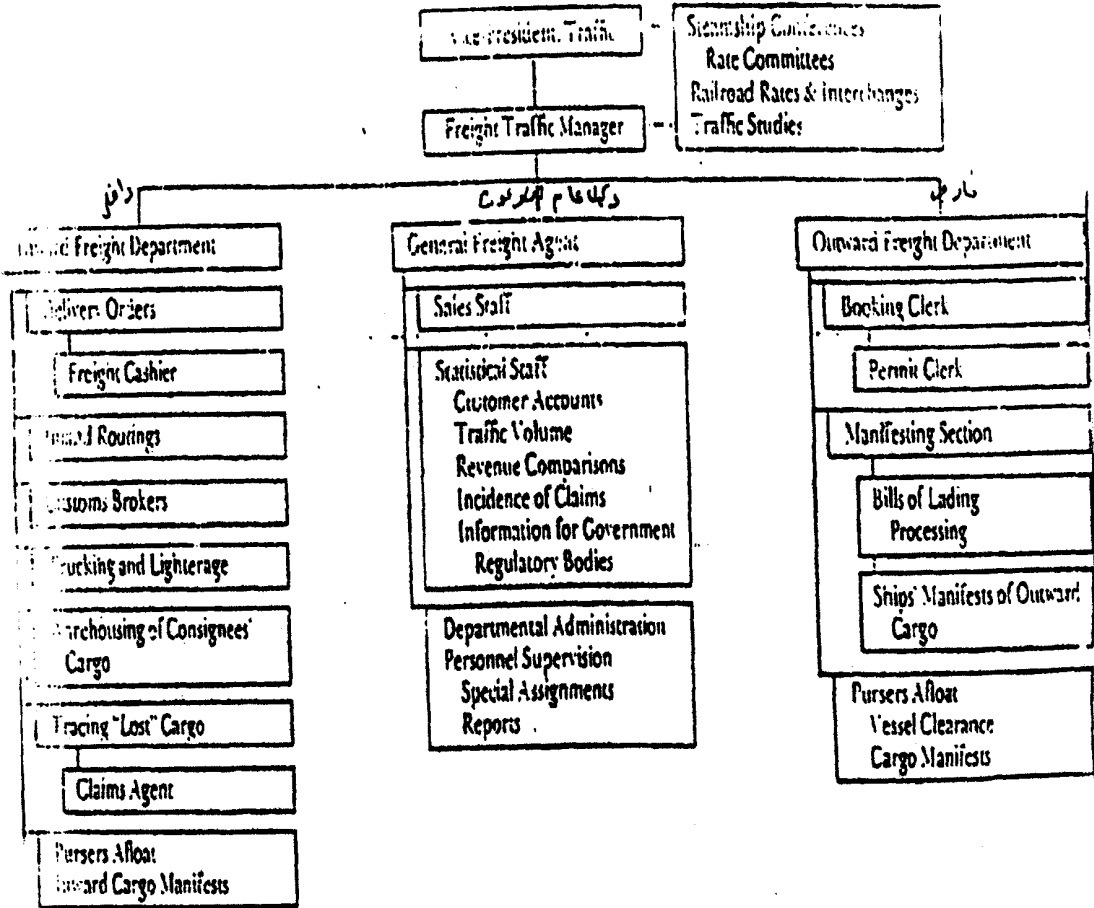 Vice-President, Traffic
Steamship Conferences
Rate Committees
Railroad Rates & Interchanges
Traffic Studies
Freight Traffic Manager
Inward Freight Department
Delivery Orders
Freight Cashier
Inland Routings
Customs Brokers
Trucking and Lighterage
Warehousing of Consignees'
Cargo
Tracing "Lost" Cargo
Claims Agent
Pursers Afloat
Inward Cargo Manifests
General Freight Agent
Sales Staff
Statistical Staff
Customer Accounts
Traffic Volume
Revenue Comparisons
Incidence of Claims
Information for Government
Regulatory Bodies
Departmental Administration
Personnel Supervision
Special Assignments
Reports
Outward Freight Department
Booking Clerk
Permit Clerk
Manifesting Section
Bills of Lading
Processing
Ships' Manifests of Outward
Cargo
Pursers Afloat
Vessel Clearance
Cargo Manifests